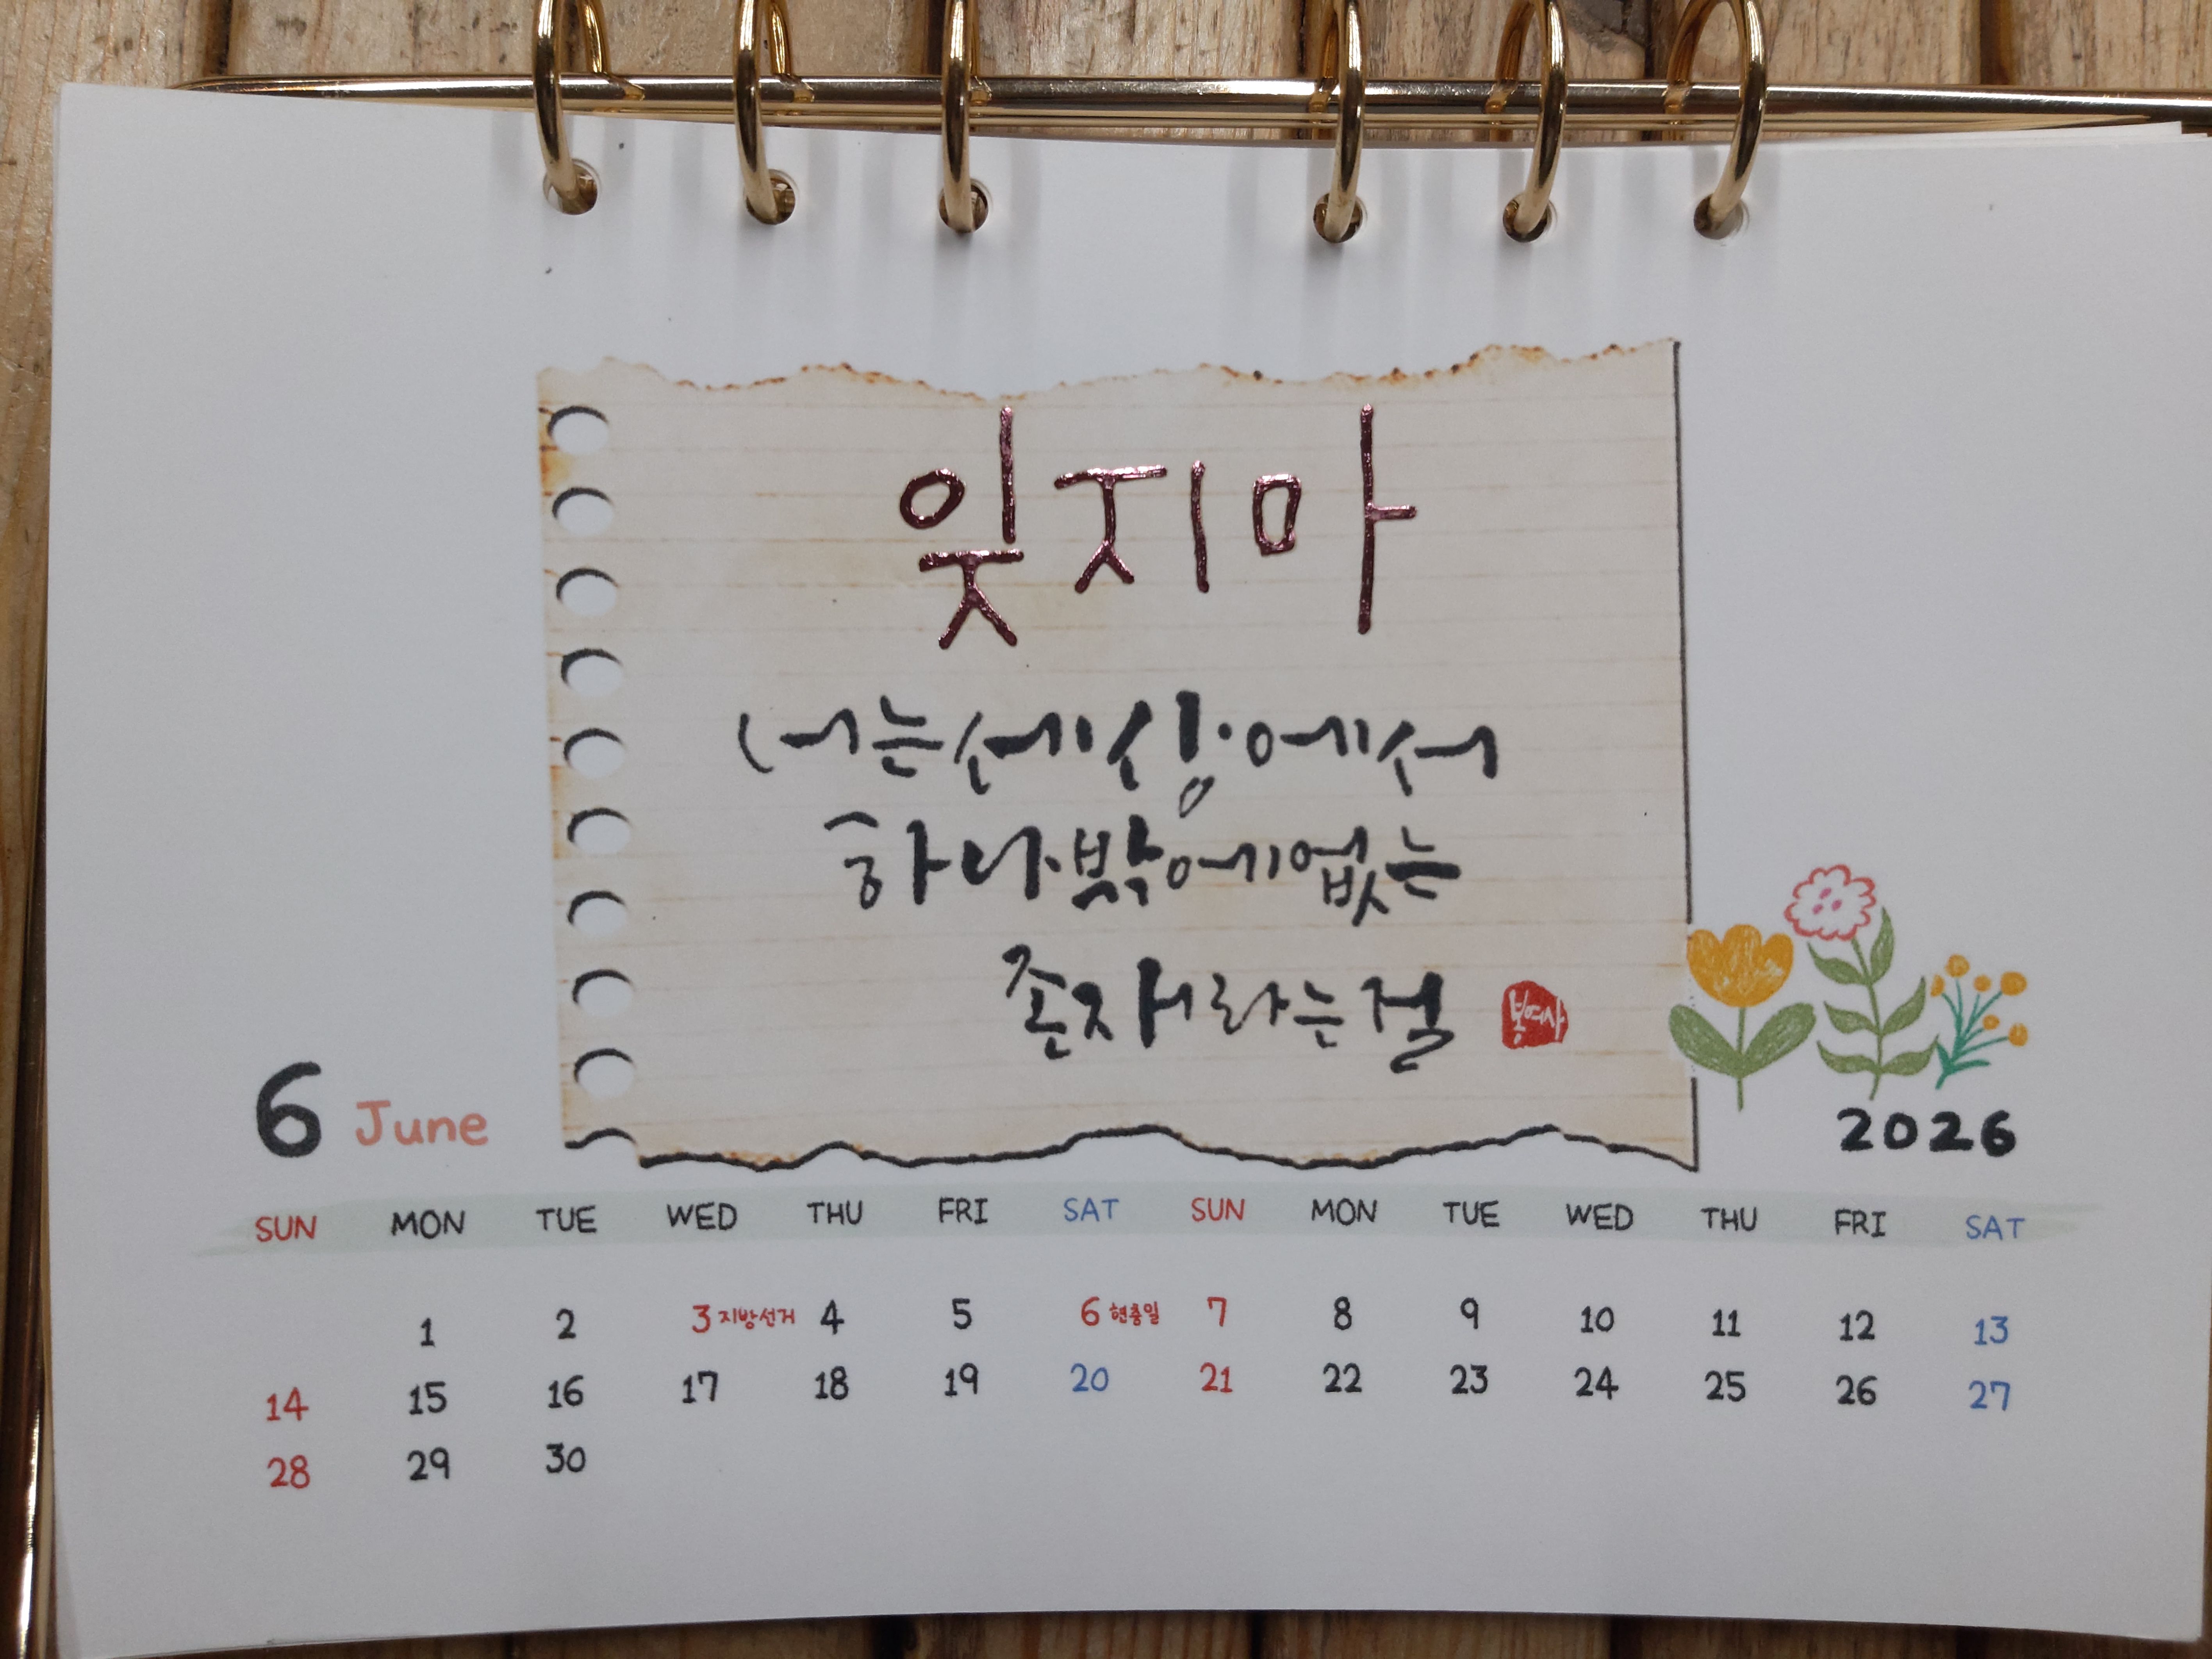 잊지마
너는세상에서
하나밖에없는
존재라는걸
봉여사
6 June
2026
SUN MON TUE WED THU FRI SAT SUN MON TUE WED THU FRI SAT
1 2 3 지방선거 4 5 6 현충일 7 8 9 10 11 12 13
14 15 16 17 18 19 20 21 22 23 24 25 26 27
28 29 30